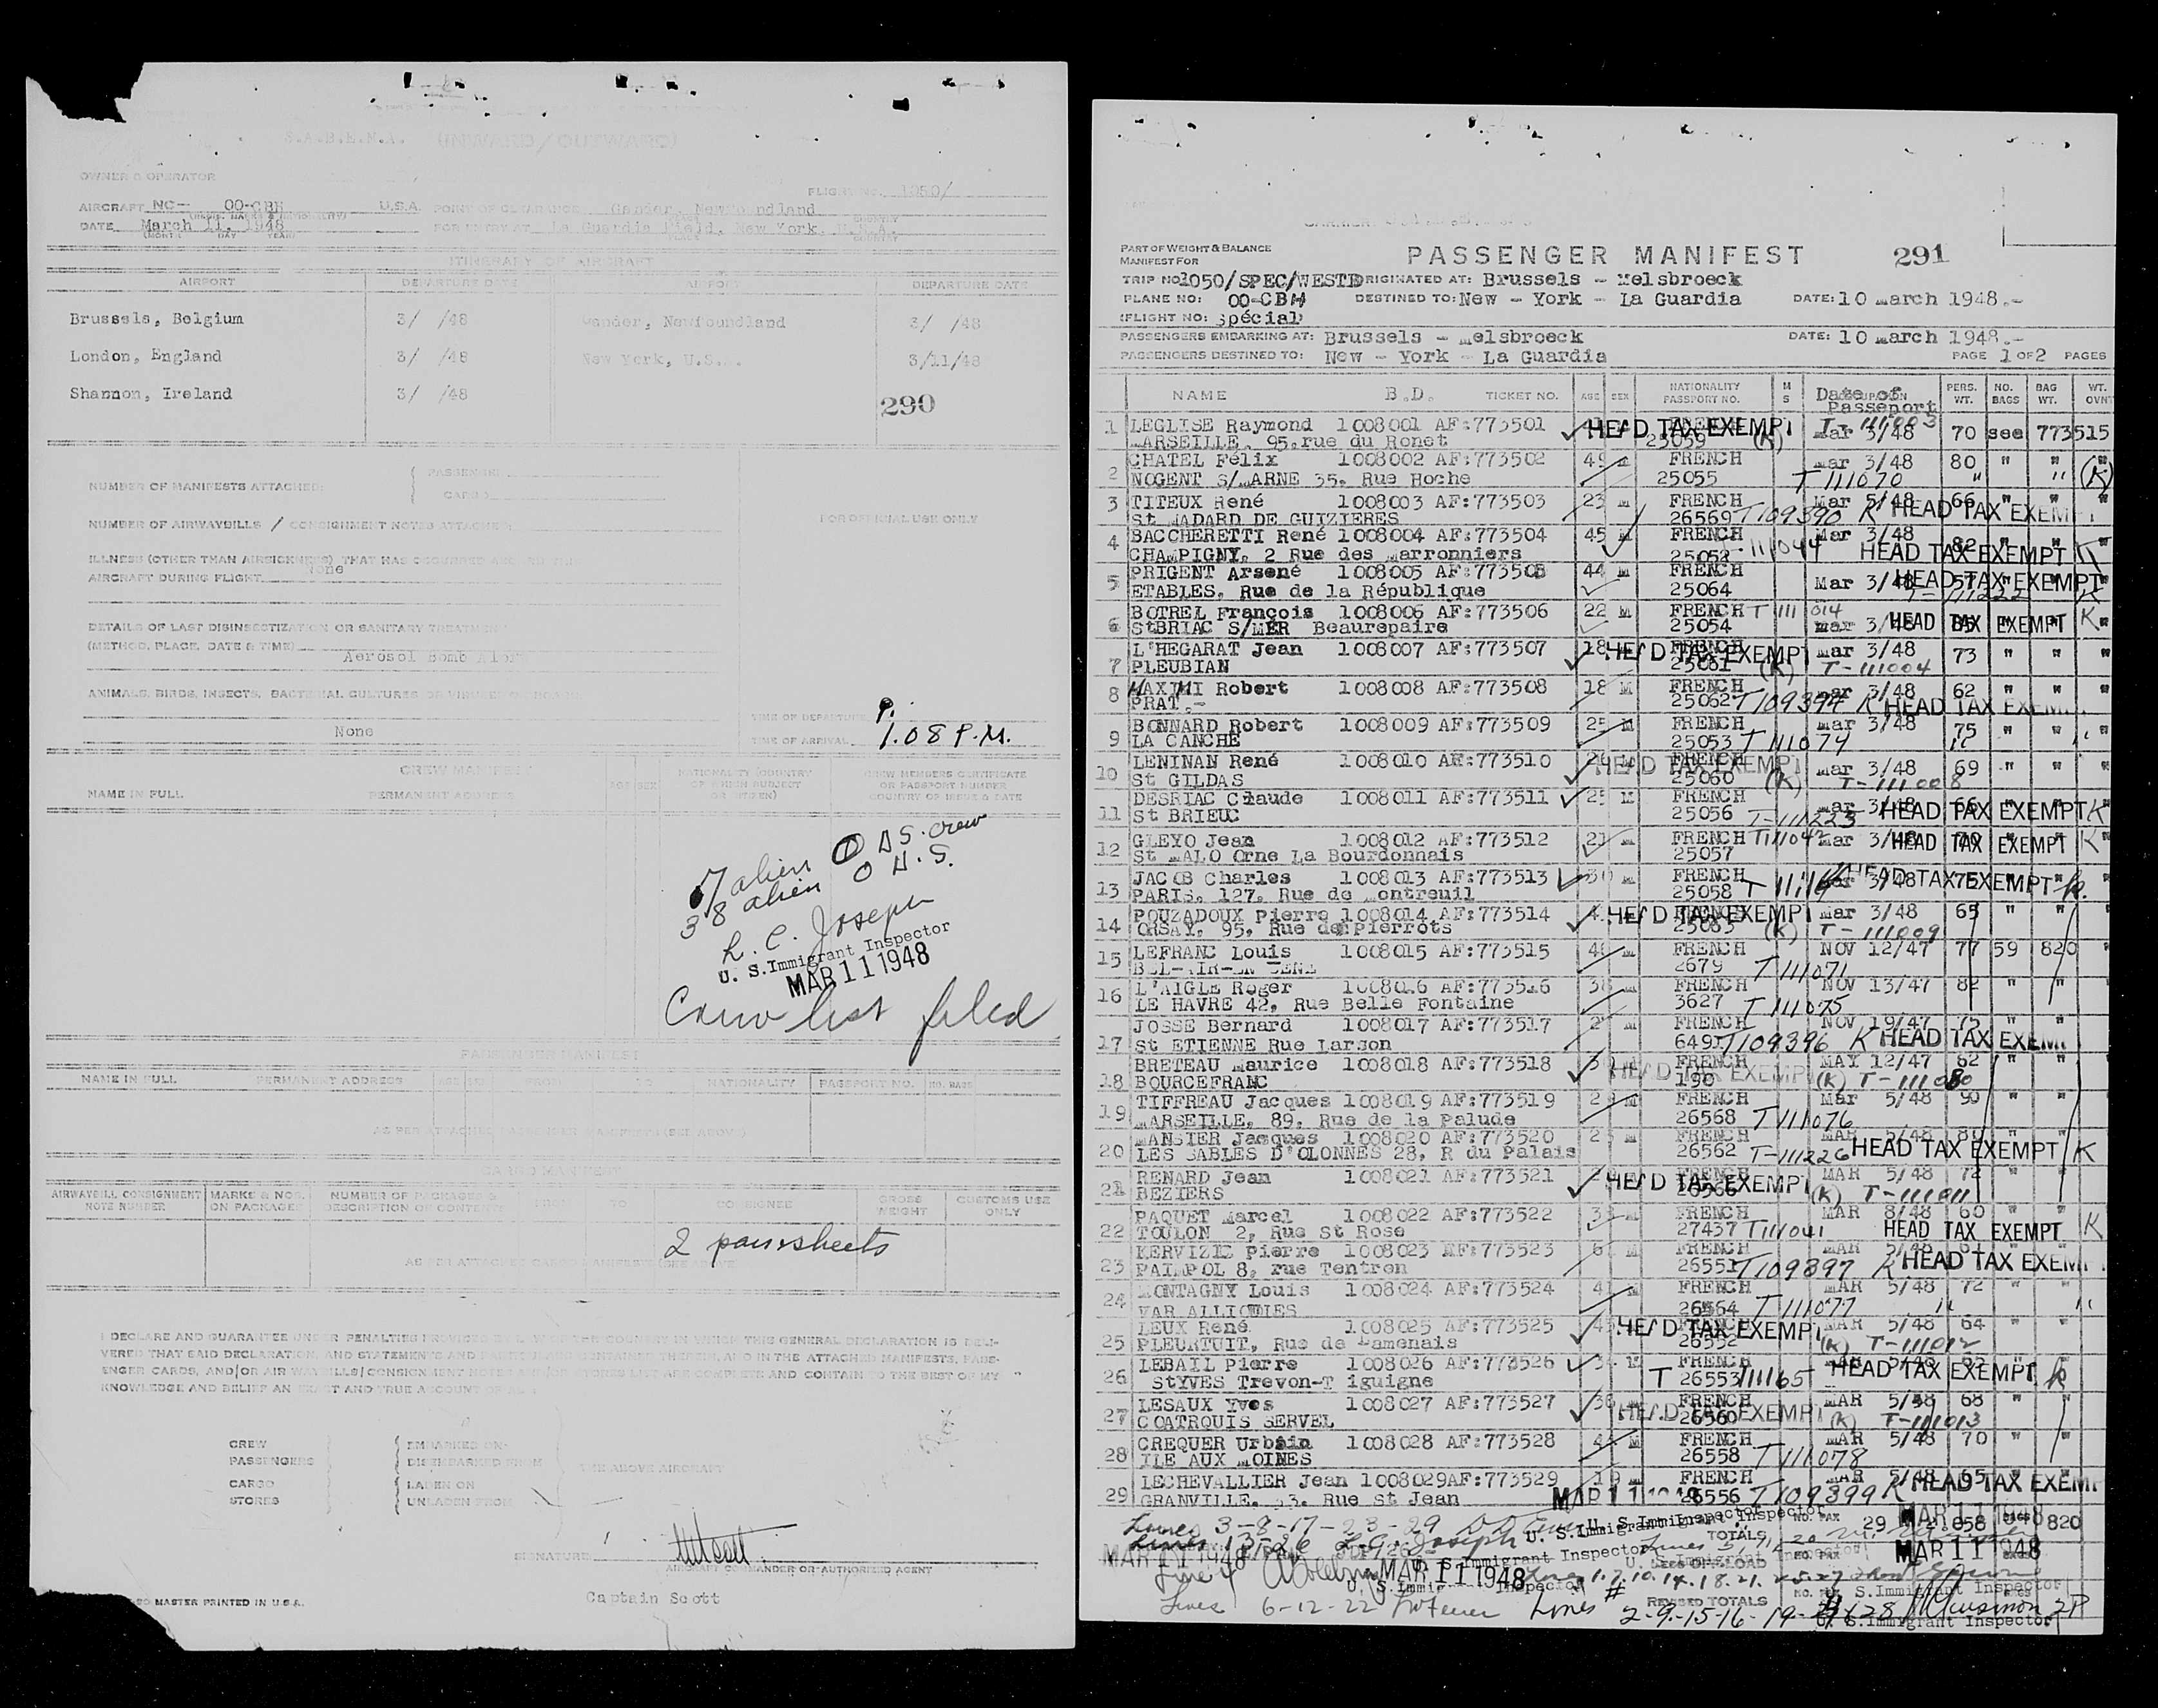 S.A.B.E.N.A. (INWARD/OUTWARD)
OWNER & OPERATOR
FLIGHT NO. 1050/
AIRCRAFT NC- OO-CBH U.S.A. POINT OF CLEARANCE Gander, Newfoundland
DATE March 11, 1948 FOR ENTRY AT La Guardia Field, New York, U.S.A.
(MONTH DAY YEAR) PLACE COUNTRY
ITINERARY OF AIRCRAFT
AIRPORT DEPARTURE DATE AIRPORT DEPARTURE DATE
Brussels, Belgium 3/ /48 Gander, Newfoundland 3/ /48
London, England 3/ /48 New York, U.S.A. 3/11/48
Shannon, Ireland 3/ /48
290
NUMBER OF MANIFESTS ATTACHED: PASSENGER
CARGO
NUMBER OF AIRWAYBILLS / CONSIGNMENT NOTES ATTACHED:
FOR OFFICIAL USE ONLY
ILLNESS (OTHER THAN AIRSICKNESS) THAT HAS OCCURRED ABOARD THIS
AIRCRAFT DURING FLIGHT None
DETAILS OF LAST DISINSECTIZATION OR SANITARY TREATMENT
(METHOD, PLACE, DATE & TIME) Aerosol Bomb
ANIMALS, BIRDS, INSECTS, BACTERIAL CULTURES OR VIRUSES ON BOARD
None
TIME OF DEPARTURE
TIME OF ARRIVAL 1.08 P.M.
CREW MANIFEST
NAME IN FULL PERMANENT ADDRESS AGE SEX NATIONALITY (COUNTRY OF WHICH SUBJECT OR CITIZEN) CREW MEMBERS CERTIFICATE OR PASSPORT NUMBER COUNTRY OF ISSUE & DATE
7 alien 0 US. crew
38 alien 0 U.S.
L. C. Joseph
U. S. Immigrant Inspector
MAR 11 1948
Crew list filed
PASSENGER MANIFEST
NAME IN FULL PERMANENT ADDRESS AGE SEX FROM TO NATIONALITY PASSPORT NO. NO. BAGS
AS PER ATTACHED PASSENGER MANIFESTS (SEE ABOVE)
CARGO MANIFEST
AIRWAYBILL CONSIGNMENT NOTE NUMBER MARKS & NOS. ON PACKAGES NUMBER OF PACKAGES & DESCRIPTION OF CONTENTS FROM TO CONSIGNEE GROSS WEIGHT CUSTOMS USE ONLY
2 pass sheets
AS PER ATTACHED CARGO MANIFESTS (SEE ABOVE)
I DECLARE AND GUARANTEE UNDER PENALTIES PROVIDED BY LAW OF THE COUNTRY IN WHICH THIS GENERAL DECLARATION IS DELI-
VERED THAT SAID DECLARATION, AND STATEMENTS AND PARTICULARS CONTAINED THEREIN, AND IN THE ATTACHED MANIFESTS, PASS-
ENGER CARDS, AND/OR AIR WAYBILLS/CONSIGNMENT NOTES AND/OR STORES LIST ARE COMPLETE AND CONTAIN TO THE BEST OF MY
KNOWLEDGE AND BELIEF AN EXACT AND TRUE ACCOUNT OF ALL
CREW EMBARKED ON-
PASSENGERS DISEMBARKED FROM
THE ABOVE AIRCRAFT
CARGO LADEN ON
STORES UNLADEN FROM
SIGNATURE
AIRCRAFT COMMANDER OR AUTHORIZED AGENT
Captain Scott
MASTER PRINTED IN U.S.A.
PART OF WEIGHT & BALANCE
MANIFEST FOR
PASSENGER MANIFEST 291
TRIP NO 1050/SPEC/WESTB ORIGINATED AT: Brussels - Melsbroeck
PLANE NO: OO-CBH DESTINED TO: New - York - La Guardia DATE: 10 march 1948.-
(FLIGHT NO: spécial)
PASSENGERS EMBARKING AT: Brussels - Melsbroeck DATE: 10 march 1948.-
PASSENGERS DESTINED TO: New - York - La Guardia PAGE 1 OF 2 PAGES
NAME B.D. TICKET NO. AGE SEX NATIONALITY PASSPORT NO. M S Date of Passeport PERS. WT. NO. BAGS BAG WT. WT. OVNT
1 LEGLISE Raymond 1008001 AF:773501 HEAD TAX EXEMPT Mar 3/48 70 see 773515
MARSEILLE, 95,rue du Ronet 25059 (K)
2 CHATEL Félix 1008002 AF:773502 49 M FRENCH Mar 3/48 80 " " (K)
NOGENT S/MARNE 35, Rue Hoche 25055 T 111070
3 TITEUX René 1008003 AF:773503 23 M FRENCH Mar 5/48 66 " " "
St MADARD DE GUIZIERES 26569 T109390 K HEAD TAX EXEMPT
4 BACCHERETTI René 1008004 AF:773504 45 M FRENCH Mar 3/48 82
CHAMPIGNY, 2 Rue des Marronniers 25052 T-111044 HEAD TAX EXEMPT K
5 PRIGENT Arsené 1008005 AF:773505 44 M FRENCH Mar 3/48 57 HEAD TAX EXEMPT
ETABLES, Rue de la République 25064 T-111222 K
6 BOTREL François 1008006 AF:773506 22 M FRENCH T 111014
StBRIAC S/MER Beaurepaire 25054 Mar 3/48 HEAD TAX EXEMPT K
7 L'HEGARAT Jean 1008007 AF:773507 18 HEAD TAX EXEMPT Mar 3/48 73 " " "
PLEUBIAN 25061 (K) T-111004
8 MAXIMI Robert 1008008 AF:773508 18 M FRENCH Mar 3/48 62 " " "
PRAT.- 25062 T109394 K HEAD TAX EXEMPT
9 BONNARD Robert 1008009 AF:773509 25 M FRENCH Mar 3/48 75 " " "
LA CANCHE 25053 T 111074
10 LENINAN René 1008010 AF:773510 HEAD TAX EXEMPT Mar 3/48 69 " " "
St GILDAS 25060 (K) T-111008
11 DESRIAC Claude 1008011 AF:773511 25 M FRENCH Mar 3/48 66 HEAD TAX EXEMPT K
St BRIEUC 25056 T-111223
12 GLEYO Jean 1008012 AF:773512 21 M FRENCH T111042 Mar 3/48 HEAD TAX EXEMPT K
St MALO Orne La Bourdonnais 25057
13 JACOB Charles 1008013 AF:773513 30 M FRENCH Mar 3/48 75 HEAD TAX EXEMPT K.
PARIS, 127, Rue de Montreuil 25058
14 POUZADOUX Pierre 1008014 AF:773514 HEAD TAX EXEMPT Mar 3/48 65 " " "
ORSAY, 95, Rue de Pierrots 25063 (K) T-111009
15 LEFRANC Louis 1008015 AF:773515 M FRENCH NOV 12/47 77 59 820 "
BEL-AIR-EN 2679 T 111071
16 L'AIGLE Roger 1008016 AF:773516 M FRENCH NOV 13/47 82 " "
LE HAVRE 42, Rue Belle Fontaine 3627 T 111075
17 JOSSE Bernard 1008017 AF:773517 M FRENCH NOV 19/47 75
St ETIENNE Rue Larson T109396 K HEAD TAX EXEMPT
18 BRETEAU Maurice 1008018 AF:773518 HEAD TAX EXEMPT FRENCH MAY 12/47 62 " "
BOURCEFRANC 190 (K) T-111080
19 TIFFREAU Jacques 1008019 AF:773519 M FRENCH Mar 5/48 90 " "
MARSEILLE, 89, Rue de la Palude 26568 T 111076
20 MANSIER Jacques 1008020 AF:773520 M FRENCH MAR 5/48 80
LES SABLES D'OLONNES 28, R du Palais 26562 T-111226 HEAD TAX EXEMPT K
21 RENARD Jean 1008021 AF:773521 HEAD TAX EXEMPT MAR 5/48 72 " "
BEZIERS 26566 (K) T-111011
22 PAQUET Marcel 1008022 AF:773522 M FRENCH MAR 8/48 60 " "
TOULON 2, Rue St Rose 27437 T111041 HEAD TAX EXEMPT K
23 KERVIZIC Pierre 1008023 AF:773523 M FRENCH MAR 5/48
PAIMPOL 8, rue Tentren 26551 T109897 K HEAD TAX EXEMPT
24 MONTAGNY Louis 1008024 AF:773524 M FRENCH MAR 5/48 72 " "
26564 T 111077
25 LEUX René 1008025 AF:773525 HEAD TAX EXEMPT MAR 5/48 64 " "
PLEURTUIT, Rue de Lamenais 26552 (K) T-111012
26 LEBAIL Pierre 1008026 AF:773526 M FRENCH MAR 5/48 HEAD TAX EXEMPT K
StYVES Trevon-T iguigne T 26553/111165
27 LESAUX Yves 1008027 AF:773527 FRENCH MAR 5/48 68 " "
COATROUIS SERVEL 26560 HEAD TAX EXEMPT (K) T-111013
28 CREQUER Urbain 1008028 AF:773528 M FRENCH MAR 5/48 70 " "
ILE AUX MOINES 26558 T 111078
29 LECHEVALLIER Jean 1008029AF:773529 19 M FRENCH MAR 5/48 65 HEAD TAX EXEMPT
GRANVILLE, 53, Rue St Jean MAR 11 1948 26556 T109399 K
Lines 3-8-17-23-29 U. S. Immigrant Inspector NO. PAX 29 MAR 11 1948 820
Lines 13-26 L.C. Joseph TOTALS
MAR 11 1948 U. S. Immigrant Inspector LESS OFFLOAD NO. PAX MAR 11 1948
Line 4 MAR 11 1948 Lines 1.7.10.14.18.21.25.27
U. S. Immigrant Inspector
Lines 6-12-22 Lines # REVISED TOTALS
2-9-15-16-19-24-28
U. S. Immigrant Inspector